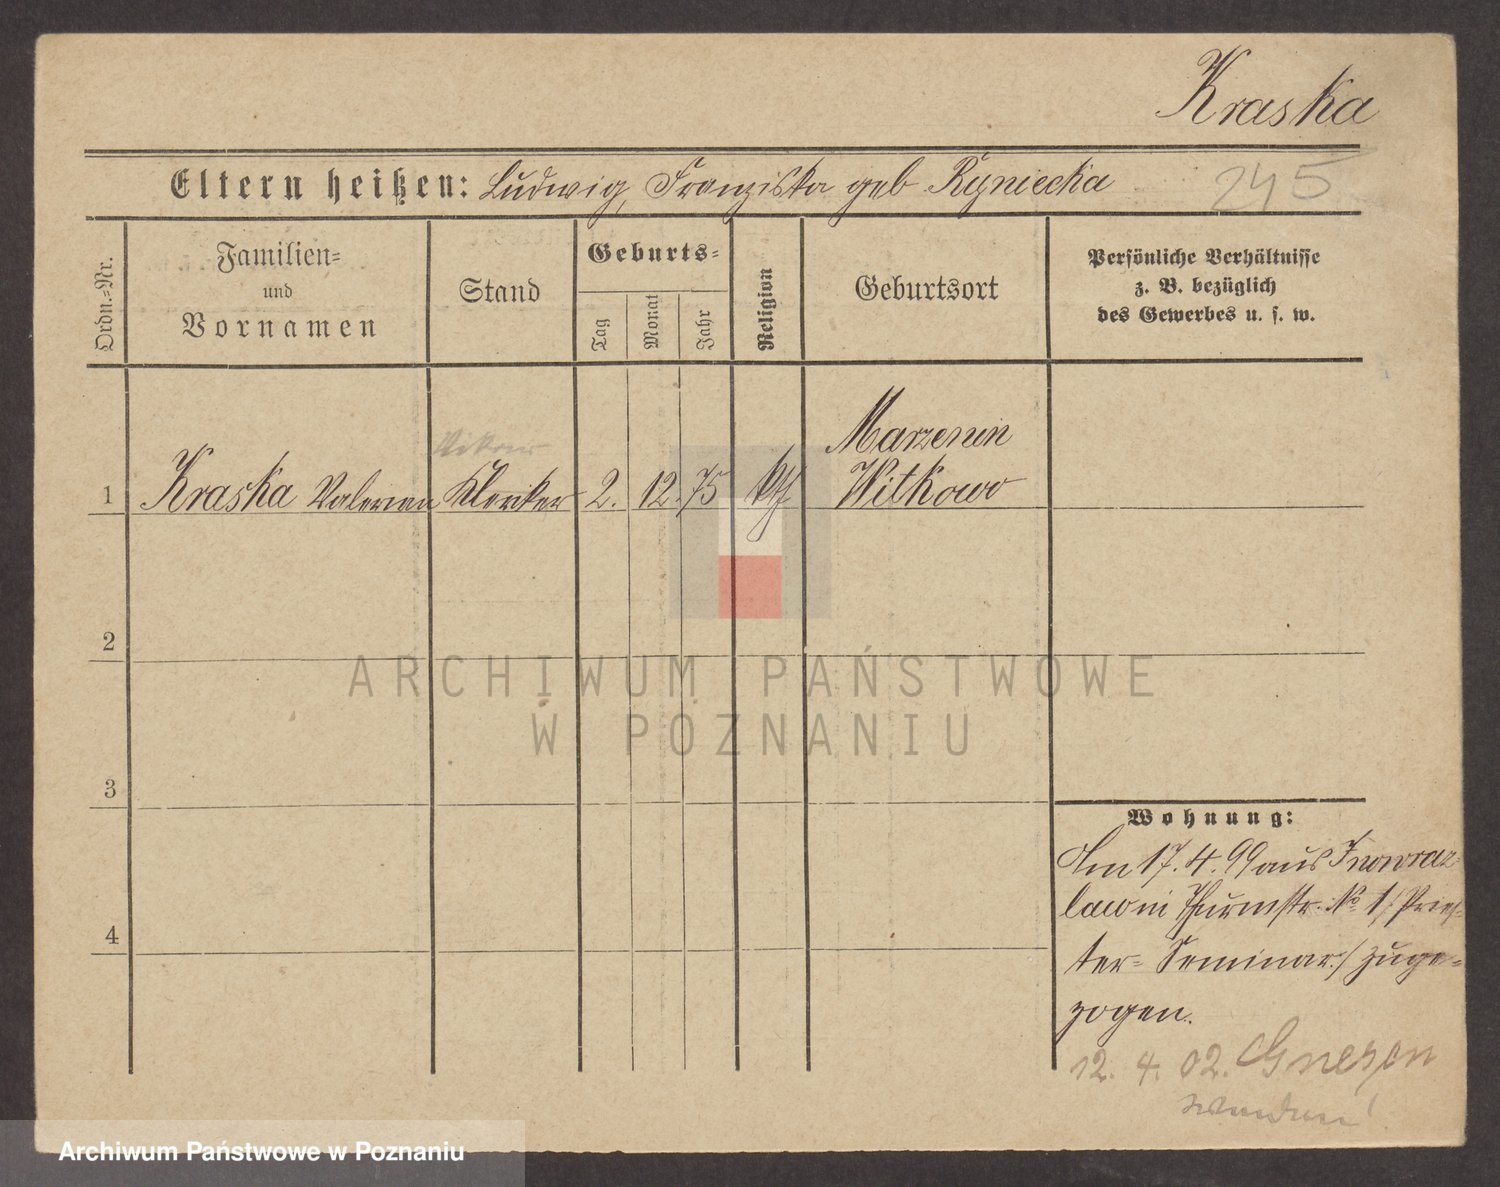 Kraska
Eltern heißen: Ludwig, Franziska geb Ryniecka
245
Ordn.-Nr.
Familien-
und
Vornamen
Stand
Geburts-
Tag
Monat
Jahr
Religion
Geburtsort
Persönliche Verhältnisse
z. B. bezüglich
des Gewerbes u. s. w.
Marzenin
1 Kraska Valerian Kleriker 2. 12. 75 kth Witkowo
2
3
4
Wohnung:
Am 17. 4. 99 aus Inowraz-
law in Thurmstr. No 1 /Pries-
ter- Seminar./ zuge-
zogen.
12. 4. 02. Gnesen
ARCHIWUM PAŃSTWOWE
W POZNANIU
Archiwum Państwowe w Poznaniu